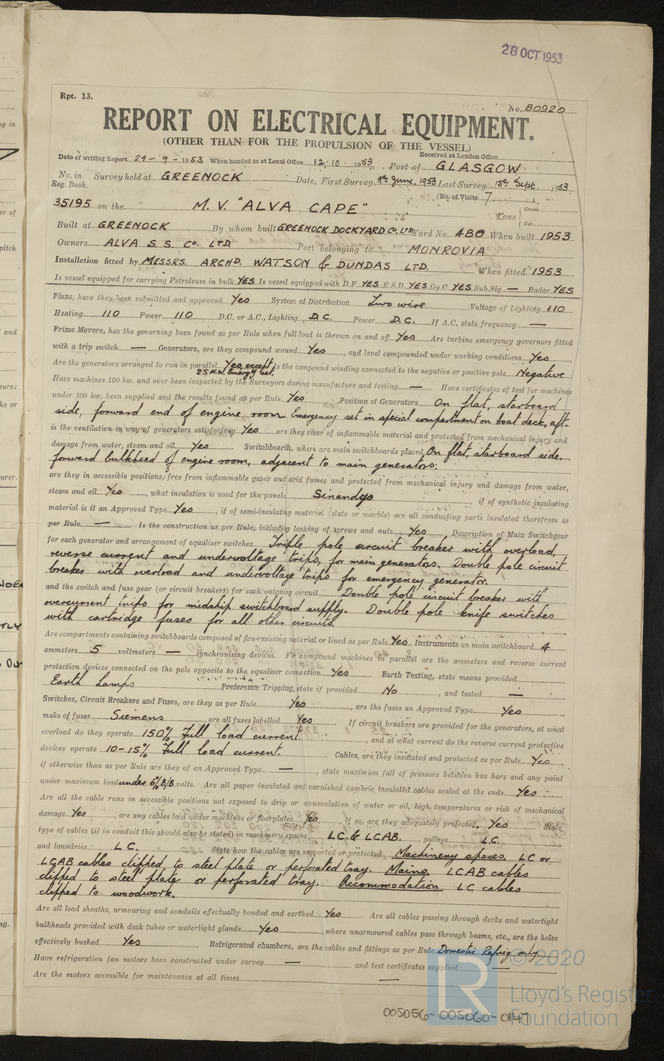 28 OCT 1953
Rpt. 13.
No. 80920
REPORT ON ELECTRICAL EQUIPMENT.
(OTHER THAN FOR THE PROPULSION OF THE VESSEL)
Received at London Office
Date of writing Report 29-9-1953 When handed in at Local Office 12.10.1953 Port of GLASGOW
No. in Survey held at GREENOCK Date, First Survey 8th June, 1953 Last Survey 18th Sept 1953
Reg. Book. (No. of Visits 7)
35195 on the M.V. "ALVA CAPE" Tons Gross Net
Built at GREENOCK By whom built GREENOCK DOCKYARD Co. LTD Yard No. 480 When built 1953
Owners ALVA S.S. Co. LTD Port belonging to MONROVIA
Installation fitted by MESSRS. ARCHD. WATSON & DUNDAS LTD. When fitted 1953
Is vessel equipped for carrying Petroleum in bulk YES Is vessel equipped with D.F. YES E.S.D. YES Gy.C YES Sub.Sig. — Radar YES
Plans, have they been submitted and approved Yes System of Distribution Two wire Voltage of Lighting 110
Heating 110 Power 110 D.C. or A.C., Lighting D.C. Power D.C. If A.C. state frequency —
Prime Movers, has the governing been found as per Rule when full load is thrown on and off Yes Are turbine emergency governors fitted
with a trip switch — Generators, are they compound wound Yes, and level compounded under working conditions Yes
Are the generators arranged to run in parallel Yes except 25 K.W. Emergy Set. Is the compound winding connected to the negative or positive pole Negative
Have machines 100 kw. and over been inspected by the Surveyors during manufacture and testing — Have certificates of test for machines
under 100 kw. been supplied and the results found as per Rule Yes Position of Generators On flat, starboard
side, forward end of engine room Emergency set in special compartment on boat deck, aft.
is the ventilation in way of generators satisfactory Yes are they clear of inflammable material and protected from mechanical injury and
damage from water, steam and oil Yes Switchboards, where are main switchboards placed On flat starboard side
forward bulkhead of engine room, adjacent to main generators.
are they in accessible positions, free from inflammable gases and acid fumes and protected from mechanical injury and damage from water,
steam and oil Yes, what insulation is used for the panels Sindanyo, if of synthetic insulating
material is it an Approved Type Yes, if of semi-insulating material (slate or marble) are all conducting parts insulated therefrom as
per Rule — Is the construction as per Rule, including locking of screws and nuts Yes Description of Main Switchgear
for each generator and arrangement of equaliser switches Triple pole circuit breaker with overload
reverse current and undervoltage trips, for main generators. Double pole circuit
breaker with overload and undervoltage trips for emergency generator.
and the switch and fuse gear (or circuit breakers) for each outgoing circuit Double pole circuit breaker with
overcurrent trips for midship switchboard supply. Double pole knife switches
with cartridge fuses for all other circuits
Are compartments containing switchboards composed of fire-resisting material or lined as per Rule Yes Instruments on main switchboard 4
ammeters 5 voltmeters — synchronising devices. For compound machines in parallel are the ammeters and reverse current
protection devices connected on the pole opposite to the equaliser connection Yes Earth Testing, state means provided
Earth Lamps Preference Tripping, state if provided No, and tested —
Switches, Circuit Breakers and Fuses, are they as per Rule Yes, are the fuses an Approved Type Yes
make of fuses Siemens, are all fuses labelled Yes If circuit breakers are provided for the generators, at what
overload do they operate 150% Full load current, and at what current do the reverse current protective
devices operate 10-15% Full load current. Cables, are they insulated and protected as per Rule Yes
if otherwise than as per Rule are they of an Approved Type —, state maximum fall of pressure between bus bars and any point
under maximum load under 6% B/B volts. Are all paper insulated and varnished cambric insulated cables sealed at the ends Yes
Are all the cable runs in accessible positions not exposed to drip or accumulation of water or oil, high temperatures or risk of mechanical
damage Yes, are any cables laid under machines or floorplates Yes, if so, are they adequately protected Yes State
type of cables (if in conduit this should also be stated) in machinery spaces LC & LCAB, galleys LC.
and laundries LC. State how the cables are supported or protected Machinery spaces. LC or
LCAB cables clipped to steel plate or perforated tray. Mains. LCAB cables
clipped to steel plate or perforated tray. Accommodation. LC cables
clipped to woodwork.
Are all lead sheaths, armouring and conduits effectually bonded and earthed Yes Are all cables passing through decks and watertight
bulkheads provided with deck tubes or watertight glands Yes, where unarmoured cables pass through beams, etc., are the holes
effectively bushed Yes Refrigerated chambers, are the cables and fittings as per Rule Domestic Refrig only
Have refrigeration fan motors been constructed under survey — and test certificates supplied —
Are the motors accessible for maintenance at all times —
© 2020
LR Lloyd's Register
Foundation
005056-005060-0147